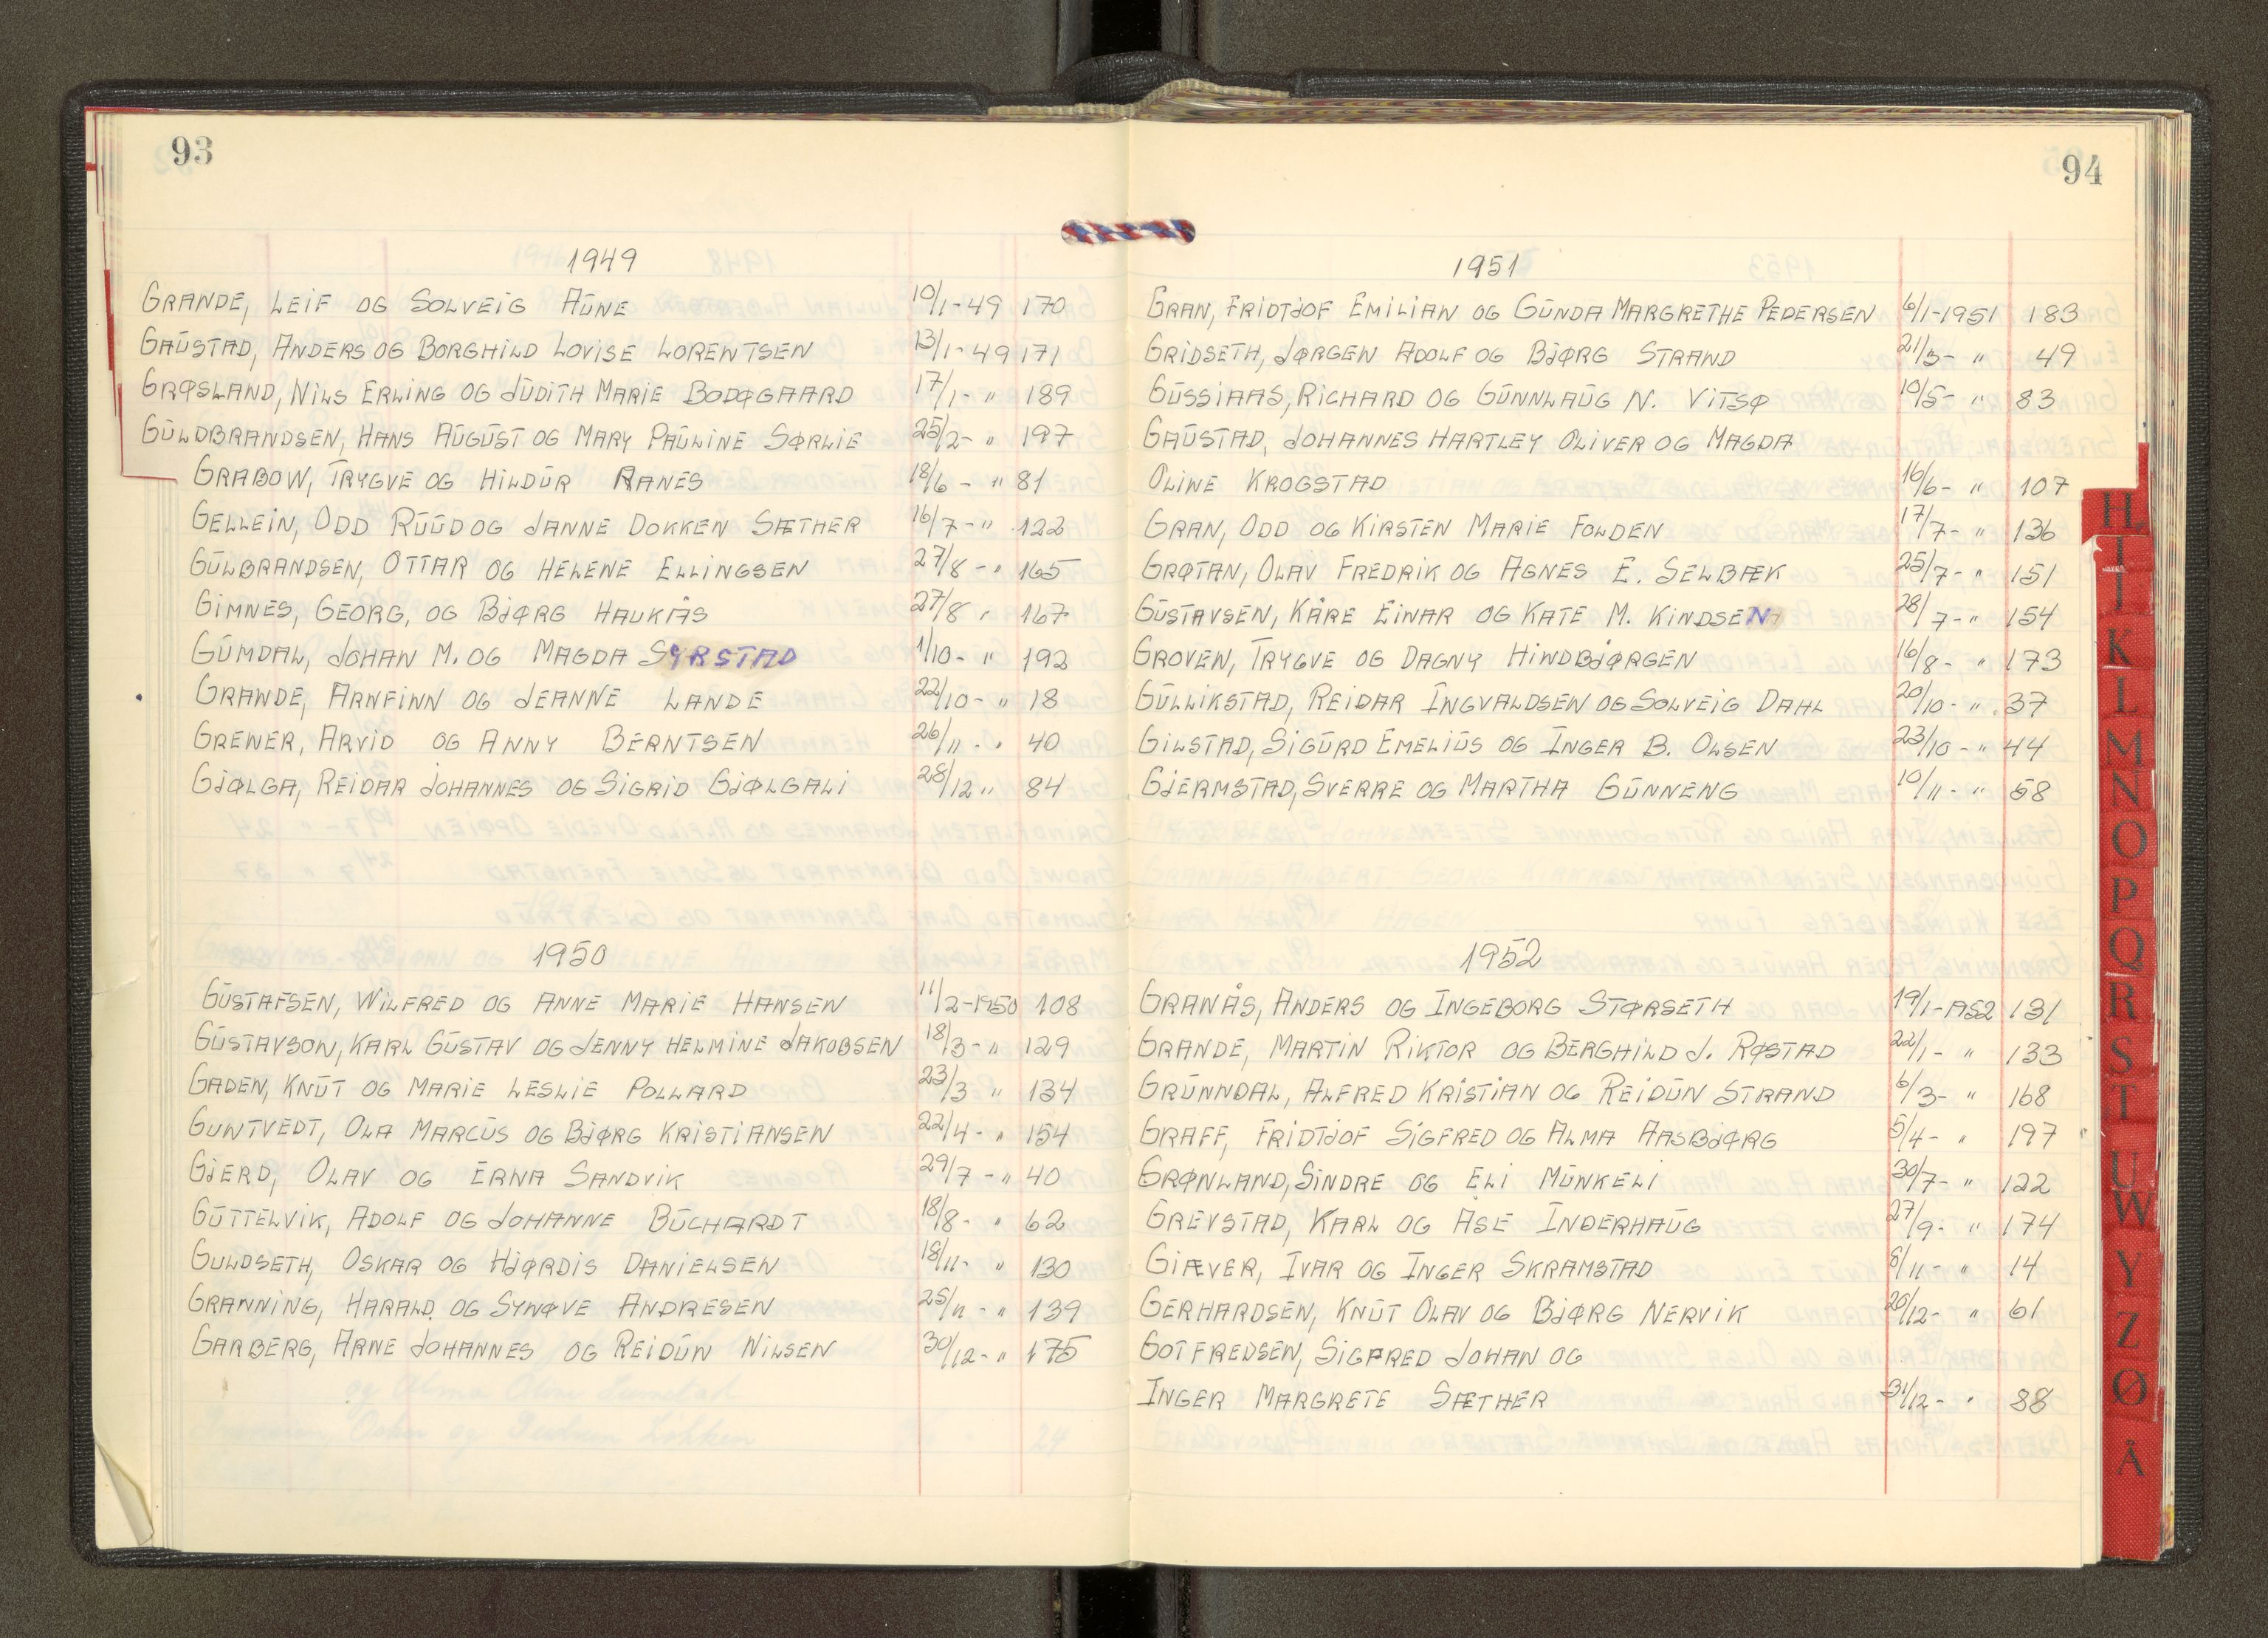 93
1949
GRANDE, LEIF OG SOLVEIG AUNE 10/1-49 170
GAUSTAD, ANDERS OG BORGHILD LOVISE LORENTSEN 13/1-49 171
GRØSLAND, NILS ERLING OG JUDITH MARIE BODØGAARD 17/1- " 189
GULDBRANDSEN, HANS AUGUST OG MARY PAULINE SØRLIE 25/2- " 197
GRABOW, TRYGVE OG HILDUR AANES 18/6 - " 81
GELLEIN, ODD RUUD OG JANNE DOKKEN SÆTHER 16/7-" 122
GULBRANDSEN, OTTAR OG HELENE ELLINGSEN 27/8 - " 165
GIMNES, GEORG, OG BJØRG HAUKÅS 27/8 " 167
GUMDAL, JOHAN M. OG MAGDA SYRSTAD 1/10- " 192
GRANDE, ARNFINN OG JEANNE LANDE 22/10- " 18
GREWER, ARVID OG ANNY BERNTSEN 26/11 - " 40
GJØLGA, REIDAR JOHANNES OG SIGRID GJØLGALI 28/12 " 84
1950
GUSTAFSEN, WILFRED OG ANNE MARIE HANSEN 11/2-1950 108
GUSTAVSON, KARL GUSTAV OG JENNY HELMINE JAKOBSEN 18/3- " 129
GADEN, KNUT OG MARIE LESLIE POLLARD 23/3 " 134
GUNTVEDT, OLA MARCUS OG BJØRG KRISTIANSEN 22/4- " 154
GJERD, OLAV OG ERNA SANDVIK 29/7 - " 40
GUTTELVIK, ADOLF OG JOHANNE BUCHARDT 18/8- " 62
GULDSETH, OSKAR OG HJØRDIS DANIELSEN 18/11- " 130
GRANNING, HARALD OG SYNØVE ANDRESEN 25/11 - " 139
GARBERG, ARNE JOHANNES OG REIDUN NILSEN 30/12- " 175
94
1951
GRAN, FRIDTJOF EMILIAN OG GUNDA MARGRETHE PEDERSEN 6/1-1951 183
GRIDSETH, JØRGEN ADOLF OG BJØRG STRAND 21/3- " 49
GUSSIAAS, RICHARD OG GUNNLAUG N. VITSØ 10/5- " 83
GAUSTAD, JOHANNES HARTLEY OLIVER OG MAGDA
OLINE KROGSTAD 16/6- " 107
GRAN, ODD OG KIRSTEN MARIE FOLDEN 17/7- " 136
GRØTAN, OLAV FREDRIK OG AGNES E. SELBÆK 25/7- " 151
GUSTAVSEN, KÅRE EINAR OG KATE M. KINDSEN 28/7-" 154
GROVEN, TRYGVE OG DAGNY HINDBJØRGEN 16/8- " 173
GULLIKSTAD, REIDAR INGVALDSEN OG SOLVEIG DAHL 20/10- " 37
GILSTAD, SIGURD EMELIUS OG INGER B. OLSEN 23/10-" 44
GJERMSTAD, SVERRE OG MARTHA GUNNENG 10/11-" 58
1952
GRANÅS, ANDERS OG INGEBORG STØRSETH 19/1-1952 131
GRANDE, MARTIN RIKTOR OG BERGHILD J. RØSTAD 22/1- " 133
GRUNNDAL, ALFRED KRISTIAN OG REIDUN STRAND 6/3- " 168
GRAFF, FRIDTJOF SIGFRED OG ALMA AASBJØRG 5/4- " 197
GRØNLAND, SINDRE OG ELI MUNKELI 30/7- " 122
GREVSTAD, KARL OG ÅSE INDERHAUG 27/9- " 174
GIÆVER, IVAR OG INGER SKRAMSTAD 8/11- " 14
GERHARDSEN, KNUT OLAV OG BJØRG NERVIK 20/12- " 61
GOTFREDSEN, SIGFRED JOHAN OG
INGER MARGRETE SÆTHER 31/12- " 88
H
I
J
K
L
M
N
O
P
Q
R
S
T
U
W
Y
Z
Ø
Å